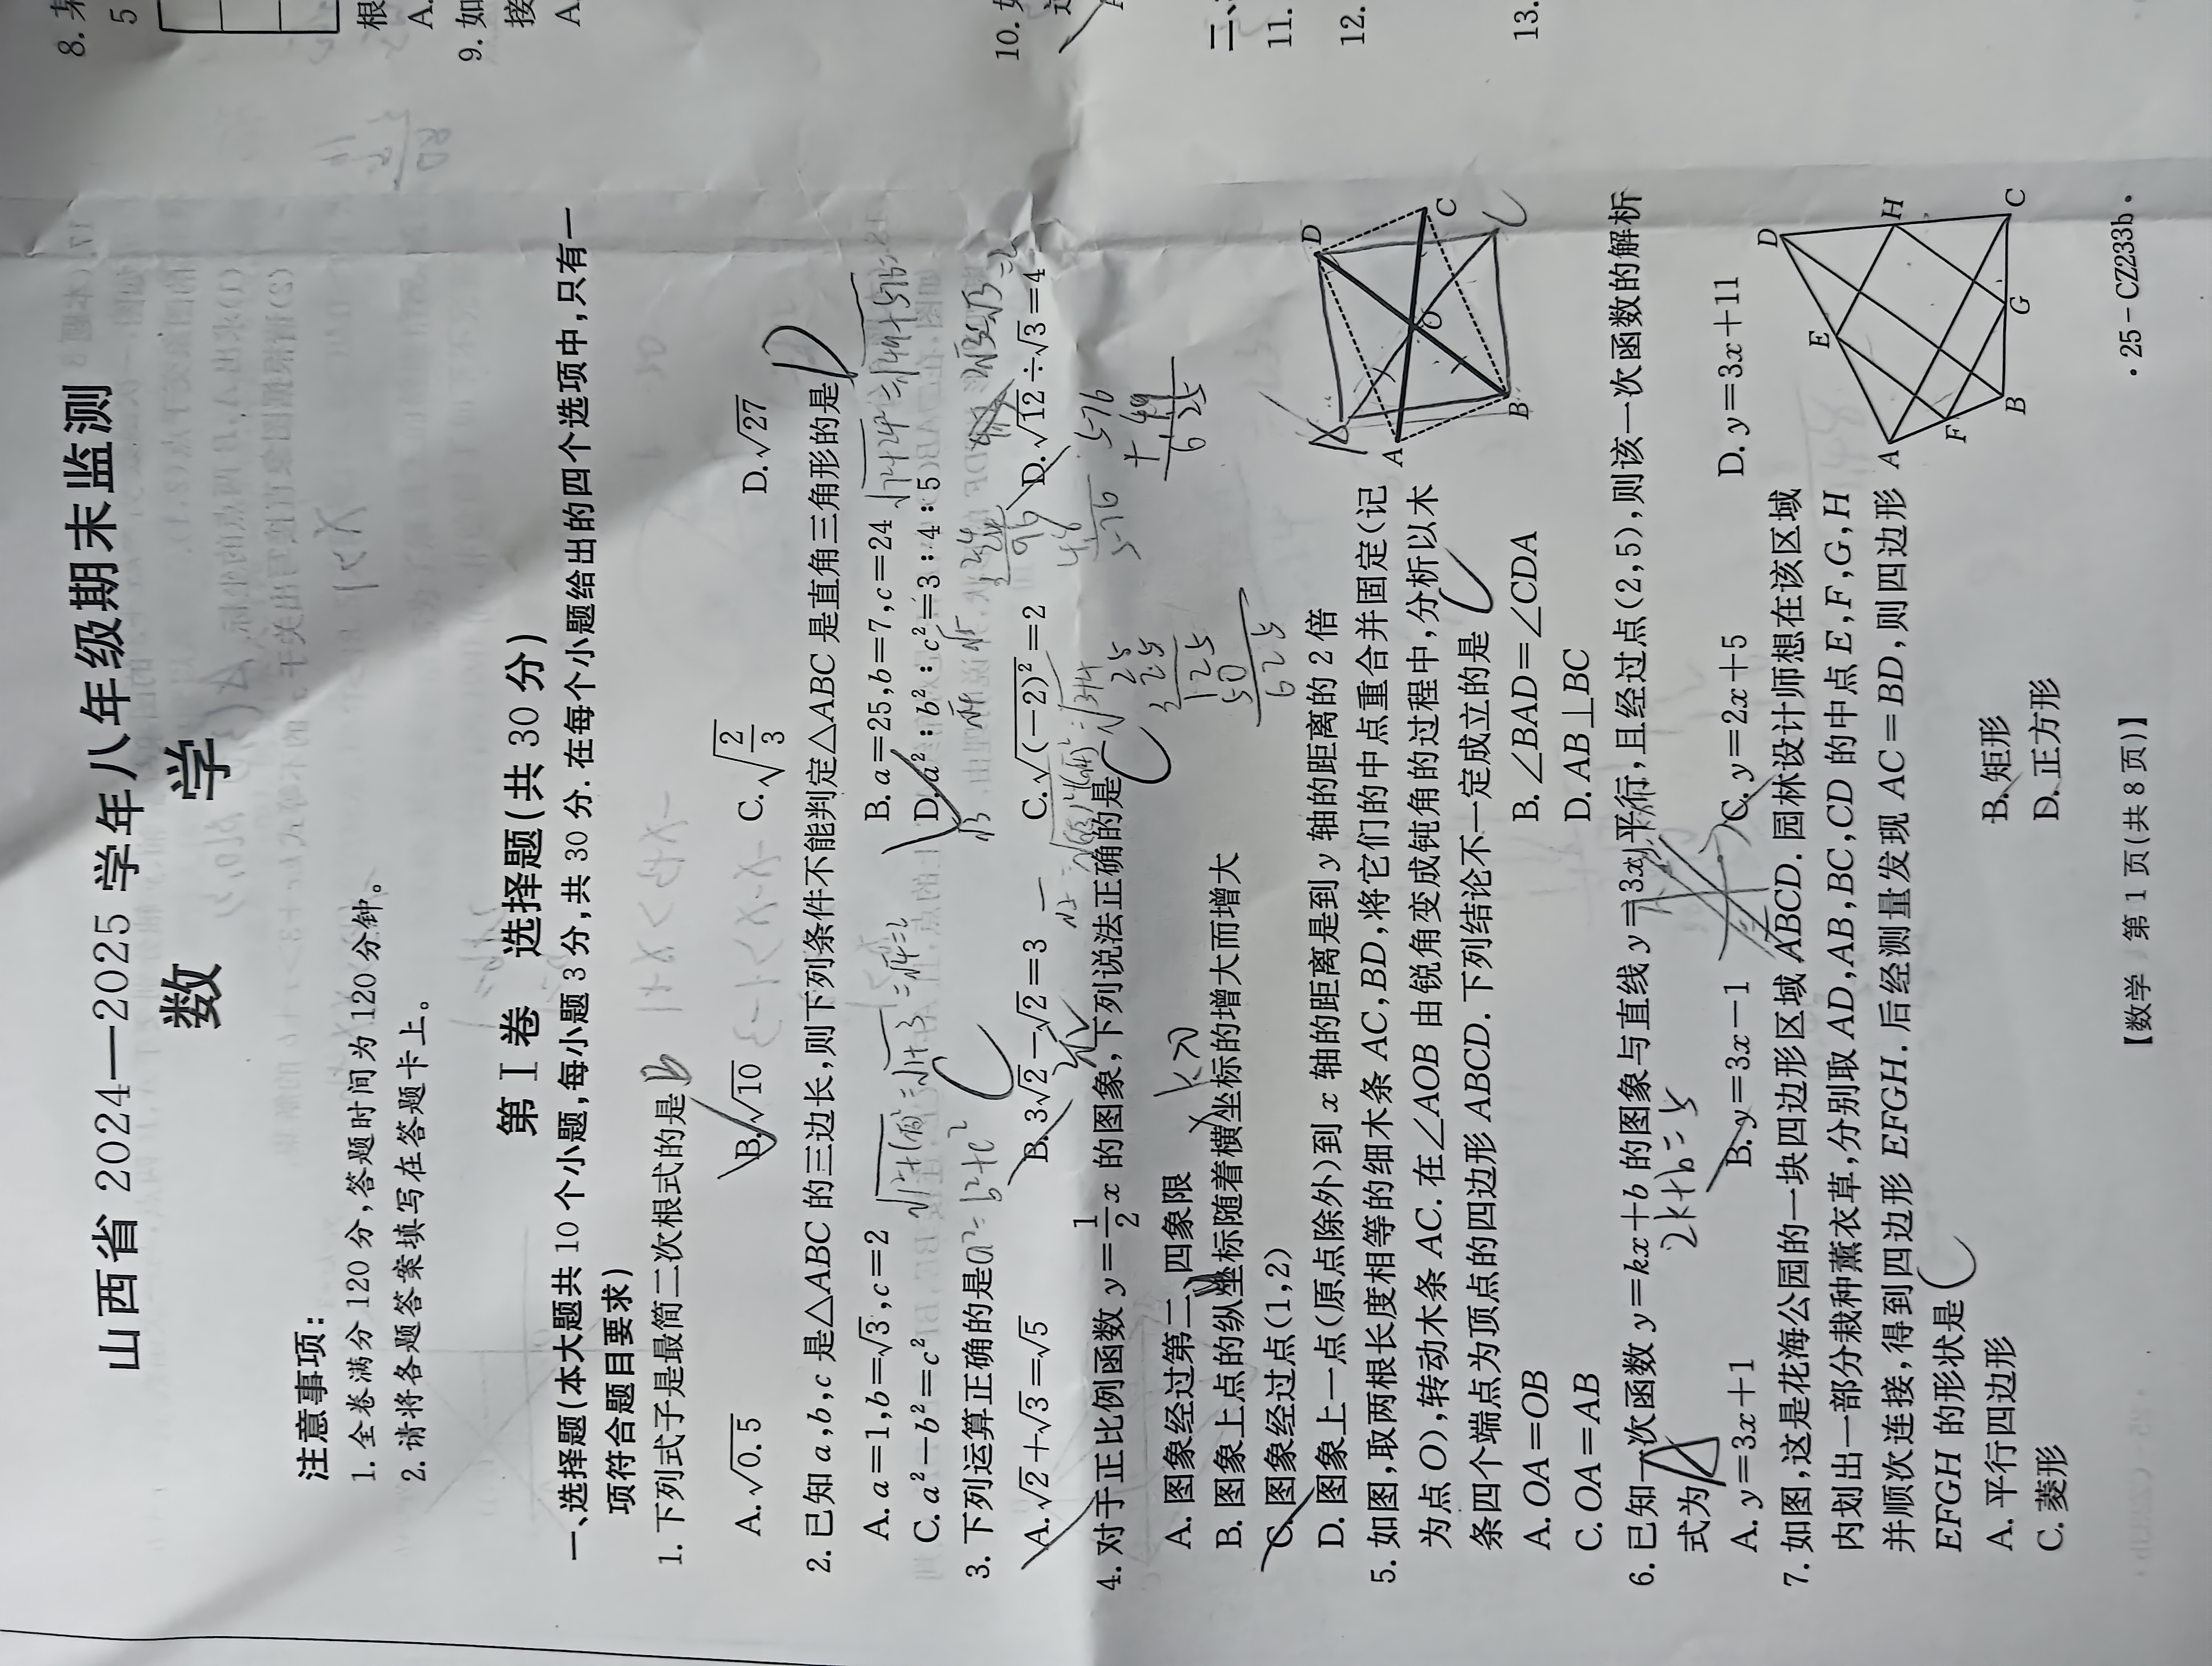 山西省 2024—2025 学年八年级期末监测
数 学
注意事项:
1. 全卷满分 120 分,答题时间为 120 分钟。
2. 请将各题答案填写在答题卡上。
第 Ⅰ 卷 选择题(共 30 分)
一、选择题(本大题共 10 个小题,每小题 3 分,共 30 分. 在每个小题给出的四个选项中,只有一
项符合题目要求)
1. 下列式子是最简二次根式的是 B
A. √0.5 B. √10 C. √(2/3) D. √27
2. 已知 a,b,c 是△ABC 的三边长,则下列条件不能判定△ABC 是直角三角形的是 D
A. a=1,b=√3,c=2 B. a=25,b=7,c=24
C. a²-b²=c² D. a²:b²:c²=3:4:5
3. 下列运算正确的是 C
a²=b²+c²
A. √2+√3=√5 B. 3√2-√2=3 C. √(-2)²=2 D. √12÷√3=4
4. 对于正比例函数 y=1/2 x 的图象,下列说法正确的是 C
A. 图象经过第二、四象限
k>0
B. 图象上点的纵坐标随着横坐标的增大而增大
C. 图象经过点(1,2)
D. 图象上一点(原点除外)到 x 轴的距离是到 y 轴的距离的 2 倍
576
+ 49
625
25
25
125
50
625
5. 如图,取两根长度相等的细木条 AC,BD,将它们的中点重合并固定(记
为点 O),转动木条 AC. 在∠AOB 由锐角变成钝角的过程中,分析以木
条四个端点为顶点的四边形 ABCD. 下列结论不一定成立的是 C
A. OA=OB B. ∠BAD=∠CDA
C. OA=AB D. AB⊥BC
A
B
C
D
O
6. 已知一次函数 y=kx+b 的图象与直线 y=3x 平行,且经过点(2,5),则该一次函数的解析
式为 A
2k+b=5
A. y=3x+1 B. y=3x-1 C. y=2x+5 D. y=3x+11
7. 如图,这是花海公园的一块四边形区域 ABCD. 园林设计师想在该区域
内划出一部分栽种薰衣草,分别取 AD,AB,BC,CD 的中点 E,F,G,H
并顺次连接,得到四边形 EFGH. 后经测量发现 AC=BD,则四边形
EFGH 的形状是 C
A. 平行四边形 B. 矩形
C. 菱形 D. 正方形
A
B
C
D
E
F
G
H
【数学 第 1 页(共 8 页)】
· 25-CZ233b ·
8. 某
5
根
A.
9. 如
接
A.
10. 如
三、
11.
12.
13.